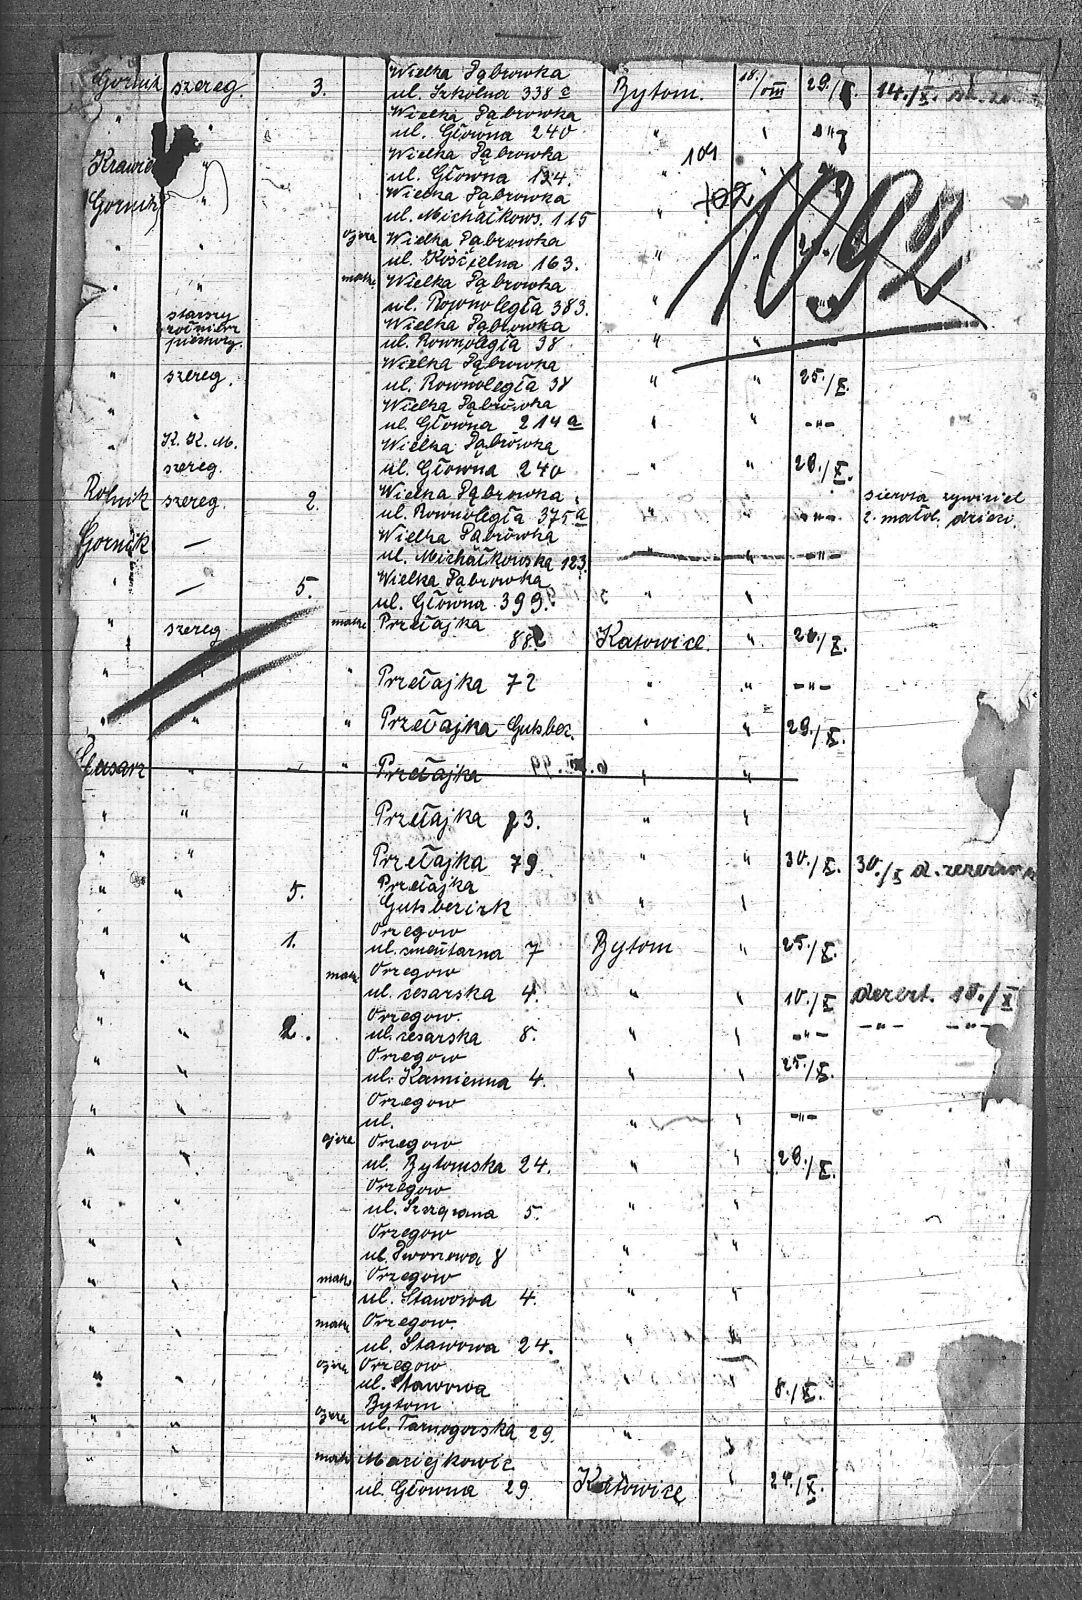 Gornik szereg. 3. Wielka Dąbrowka
ul. Szkolna 338 c Bytom. 18./VIII 29./X. 14./X.
" " Wielka Dąbrowka
ul. Głowna 240 " " "
Krawiec " Wielka Dąbrowka 104
ul. Głowna 134. "
Gornik " Wielka Dąbrowka 102
ul. Michałkows. 115 "
1092
" " ojca Wielka Dąbrowka
ul. Kościelna 163. "
" " matke Wielka Dąbrowka
ul. Rownoległa 383. "
" starszy Wielka Dąbrowka
ul. Rownoległa 38 " "
" szereg. Wielka Dąbrowka
ul. Rownoległa 38 " " 25./X.
" Wielka Dąbrowka
ul. Głowna 214 a " " -"-
" K. K. M. Wielka Dąbrowka
szereg. ul. Głowna 240 " " 28./X.
Rolnik szereg. 2. Wielka Dąbrowka sierota
ul. Rownoległa 375 a " " -"- 2. dzieci
Gornik — Wielka Dąbrowka
ul. Michałkowska 123. " " -"-
" — 5. Wielka Dąbrowka
ul. Głowna 399. "
" szereg matke Przełajka
88. Katowice. " 26./X.
" " " Przełajka 72 " " -"-
" " " Przełajka Gutsbez. " " 29./X.
Ślusarz " — " Przełajka " "
" " Przełajka 23. " "
" " Przełajka 79 " " 30./X. 30./X d. rezerw
" " 5. Przełajka
Gutsbezirk " "
" " 1. Orzegow
ul. 7 Bytom " 25./X.
" matke Orzegow
ul. 4. " " 10./X dezert. 10./X
" " 2. Orzegow.
ul. 8. " " -"- -"- -"-
" " Orzegow
ul. Kamienna 4. " " 25./X.
" " Orzegow
ul. " " -"-
" " ojca Orzegow
ul. Bytomska 24. " " 28./X.
" " Orzegow
ul. 5. " "
" " Orzegow
ul. Dworcowa 8 " "
" " matke Orzegow
ul. Stawowa 4. " "
" " matke Orzegow.
ul. Stawowa 24. " "
" " ojca Orzegow
ul. Stawowa " " 8./X.
" " ojca Bytom
ul. Tarnogorska 29. " "
" " matke Maciejkowic
ul. Głowna 29 Katowice " 24./X.